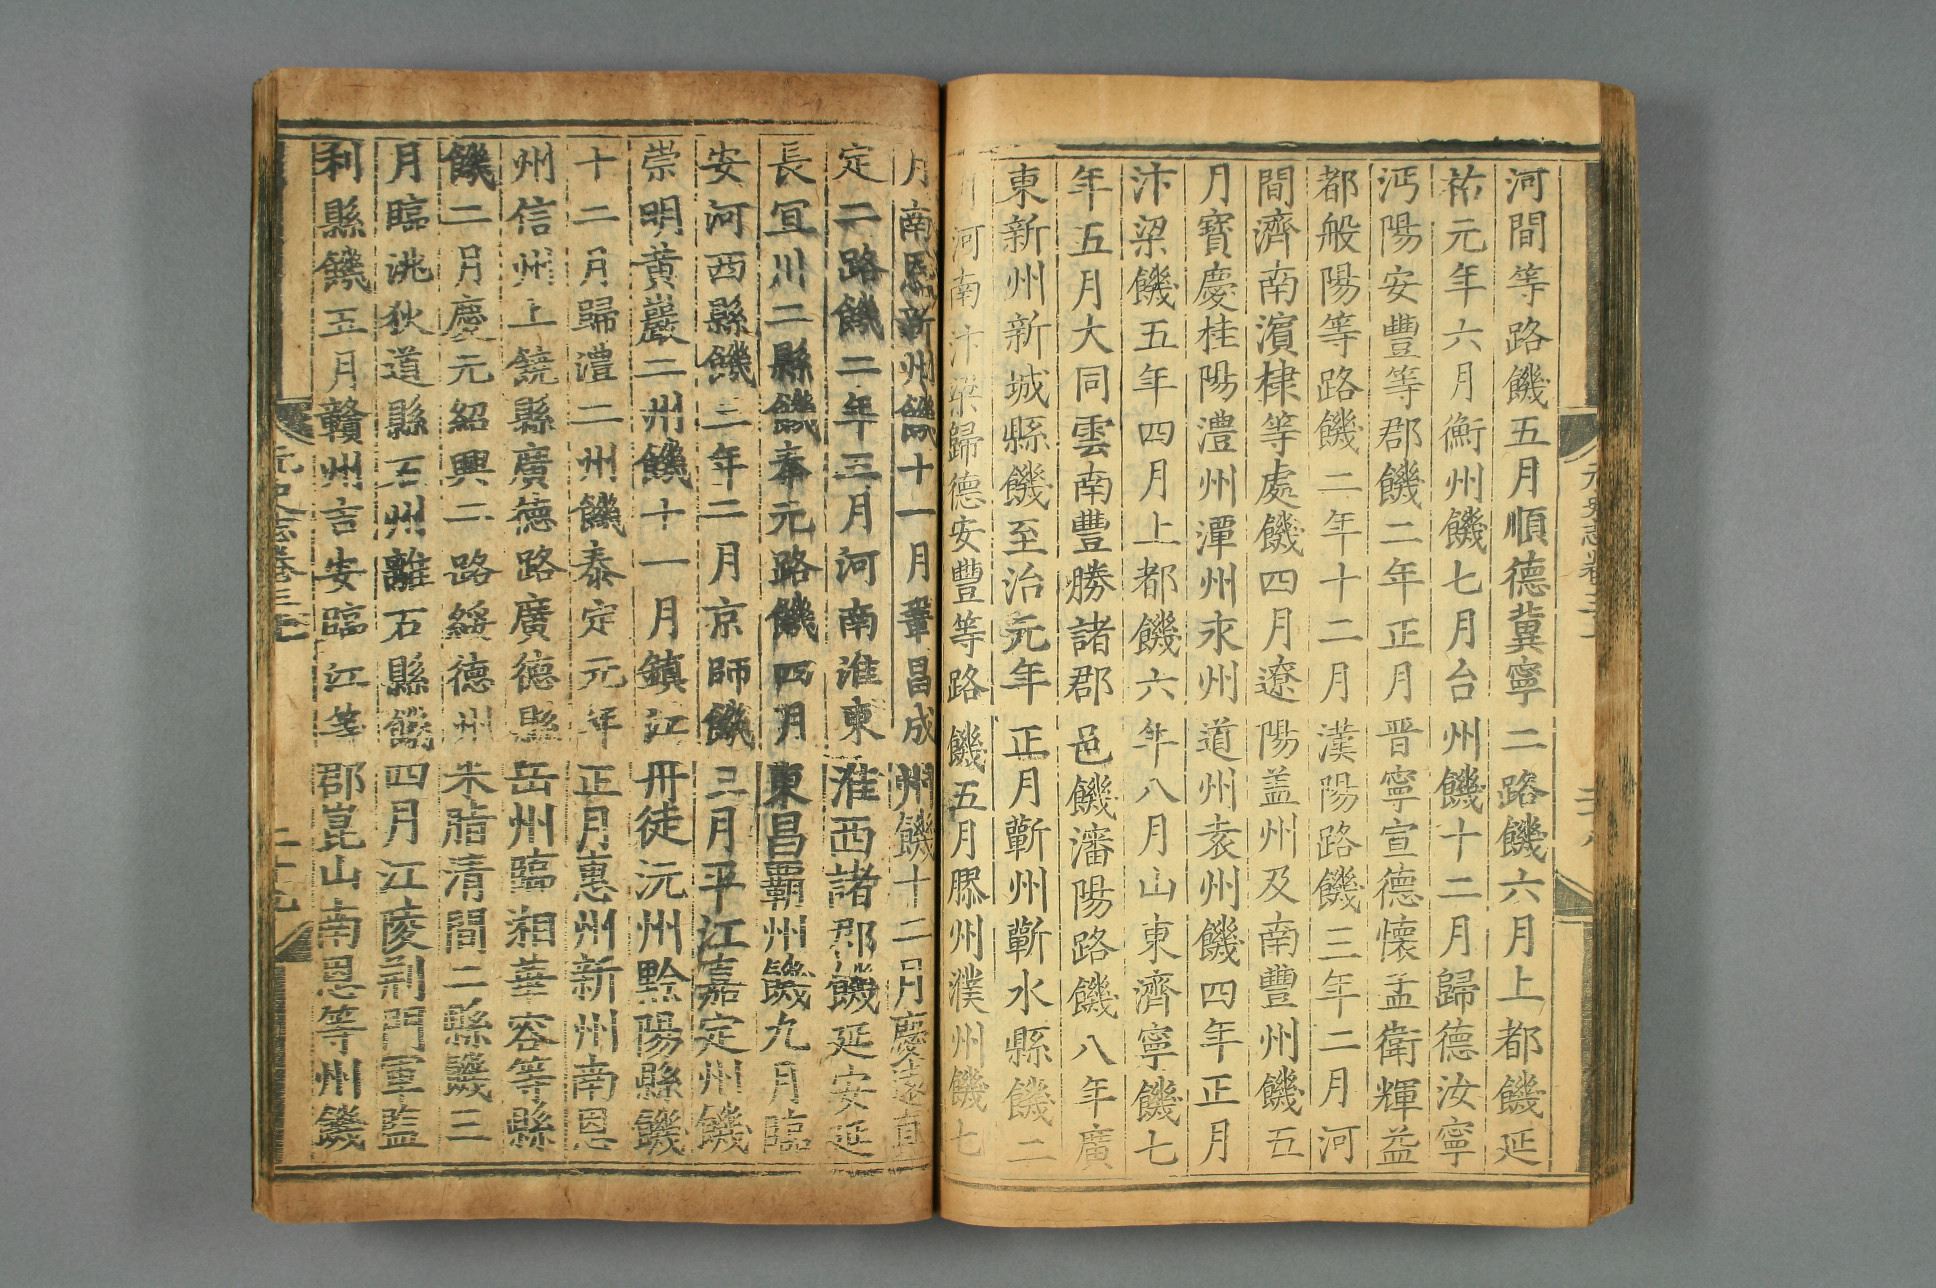 河間等路饑五月順德冀寧二路饑六月上都饑延
祐元年六月衡州饑七月台州饑十二月歸德汝寧
沔陽安豐等郡饑二年正月晋寧宣德懷孟衛輝益
都般陽等路饑二年十二月漢陽路饑三年二月河
間濟南濱棣等處饑四月遼陽盖州及南豐州饑五
月寶慶桂陽澧州潭州永州道州袁州饑四年正月
汴梁饑五年四月上都饑六年八月山東濟寧饑七
年五月大同雲南豐勝諸郡邑饑瀋陽路饑八年廣
東新州新城縣饑至治元年正月蘄州蘄水縣饑二
月河南汴梁歸德安豐等路饑五月膠州濮州饑七
月南恩新州饑十一月鞏昌成州饑十二月慶遠真
定二路饑二年三月河南淮東淮西諸郡饑延安延
長宜川二縣饑奉元路饑四月東昌霸州饑九月臨
安河西縣饑三年二月京師饑三月平江嘉定州饑
崇明黃巖二州饑十一月鎮江丹徒沅州黔陽縣饑
十二月歸澧二州饑泰定元年正月惠州新州南恩
州信州上饒縣廣德路廣德縣岳州臨湘華容等縣
饑二月慶元紹興二路綏德州米脂清澗二縣饑三
月臨洮狄道縣石州離石縣饑四月江陵荊門軍監
利縣饑五月贛州吉安臨江等郡崑山南恩等州饑
元史志卷三 二十九